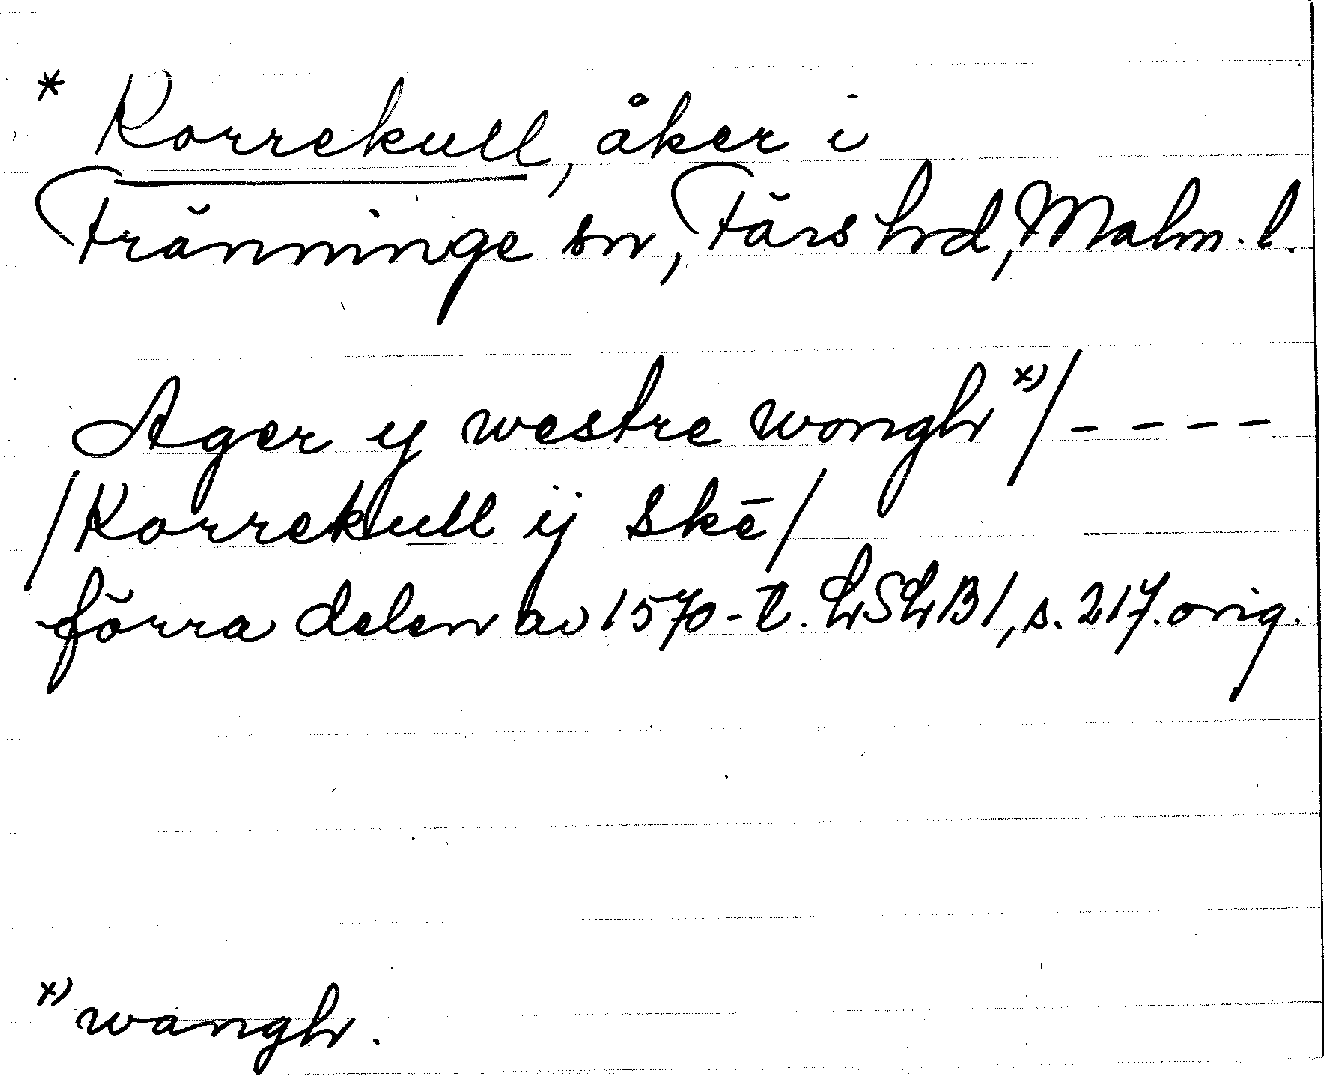 * Korrekull, åker i
Tränninge sn, Färs hd, Malm. l.
Ager y westre wongh x) / - - - -
/ Korrekull ij skē /
förra delen av 1570-t. LSLB1, s. 217. orig.
x) wangh.